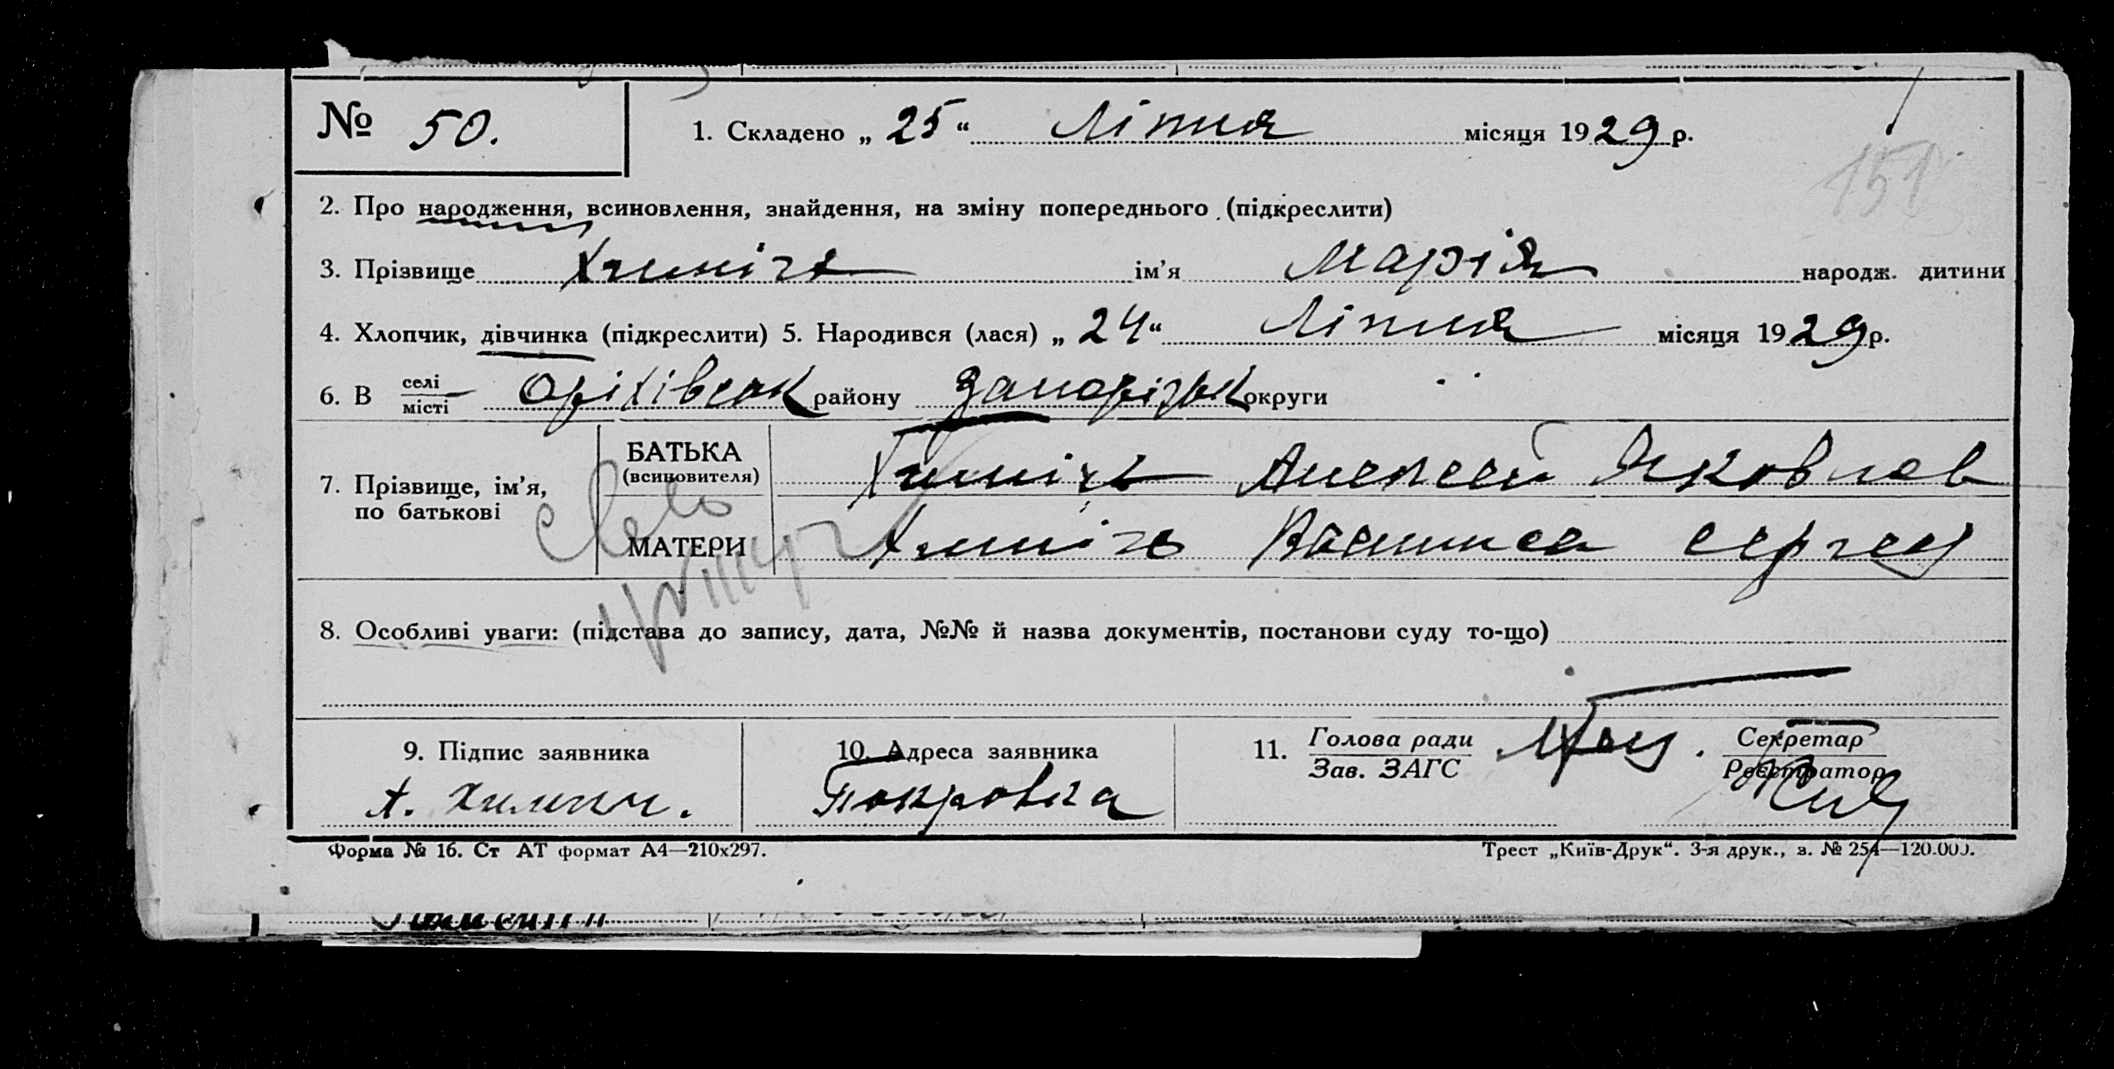 № 50. 1. Складено „ 25 “ Ліпня місяця 1929 р.
151
2. Про народження, всиновлення, знайдення, на зміну попереднього (підкреслити)
3. Прізвище Химічь ім’я Марія народж. дитини
4. Хлопчик, дівчинка (підкреслити) 5. Народився (лася) „ 24 “ Ліпня місяця 1929 р.
6. В селі місті Оріхівськ району Запорізьк округи
7. Прізвище, ім’я, по батькові
БАТЬКА (всиновителя) Химічь Алексей Яковлев
МАТЕРИ Химічь Сергеев
8. Особливі уваги: (підстава до запису, дата, №№ й назва документів, постанови суду то-що)
9. Підпис заявника 10. Адреса заявника 11. Голова ради Зав. ЗАГС Секретар Реєстратор
А. Химич. Покровка
Форма № 16. Ст АТ формат А4—210х297. Трест „Київ-Друк“. 3-я друк., з. № 254—120.000.